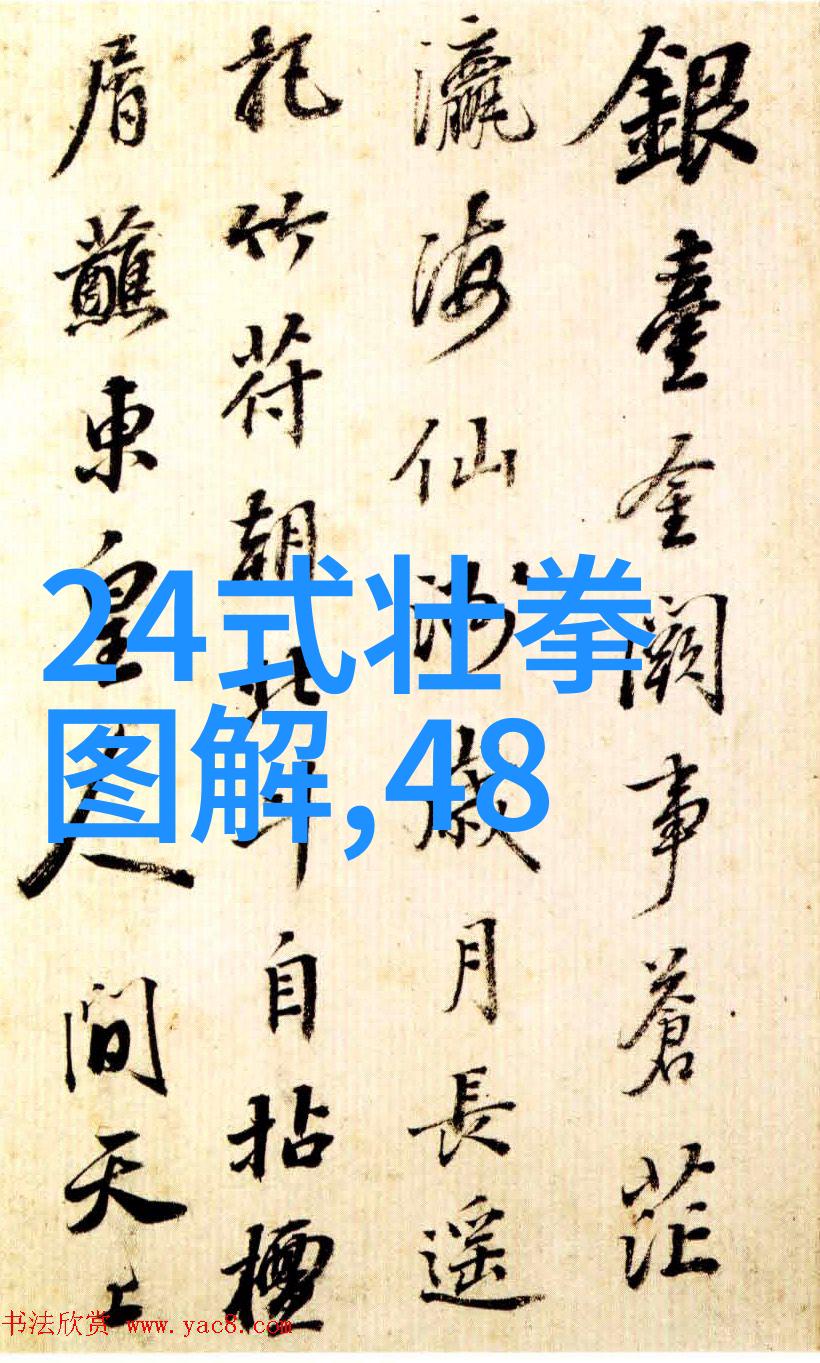 銀臺金闕事蒼茫
瀛海仙洲歲月長遥
把竹符朝北斗自拈檀
屑蘸東皇人間天上
24式壮拳
图解,48
书法欣赏 www.yac8.com